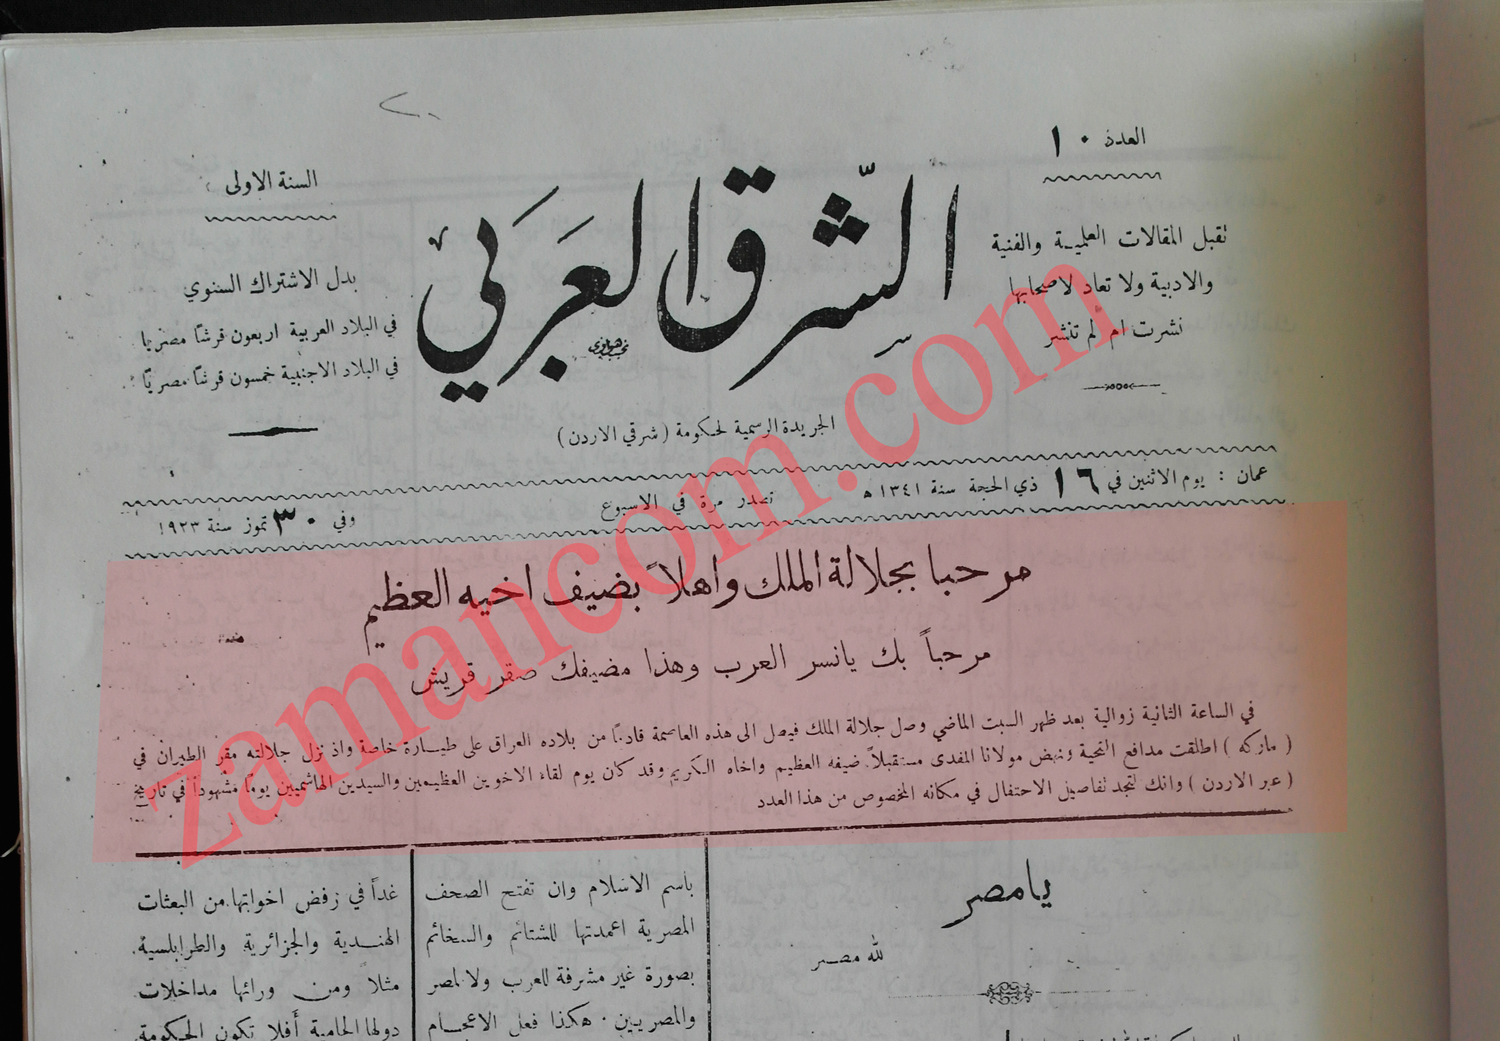 العدد ١٠
السنة الاولى
الشّرق العَرَبي
نقبل المقالات العلمية والفنية
والادبية ولا تعاد لاصحابها
نشرت ام لم تنشر
بدل الاشتراك السنوي
في البلاد العربية اربعون قرشا مصريا
في البلاد الاجنبية خمسون قرشا مصريا
الجريدة الرسمية لحكومة (شرقي الاردن)
عمان : يوم الاثنين في ١٦ ذي الحجة سنة ١٣٤١ ه تصدر مرة في الاسبوع وفي ٣٠ تموز سنة ١٩٢٣
مرحبا بجلالة الملك واهلاً بضيف اخيه العظيم
مرحباً بك يانسر العرب وهذا مضيفك صقر قريش
في الساعة الثانية زوالية بعد ظهر السبت الماضي وصل جلالة الملك فيصل الى هذه العاصمة قادمًا من بلاده العراق على طيارة خاصة واذ نزل جلالته مقر الطيران في
( ماركه ) اطلقت مدافع التحية ونهض مولانا المفدى مستقبلاً ضيفه العظيم واخاه الكريم وقد كان يوم لقاء الاخوين العظيمين والسيدين الهاشميين يومًا مشهوداً في تاريخ
( عبر الاردن ) وانك لتجد تفاصيل الاحتفال في مكانه المخصوص من هذا العدد
يا مصر
لله مصر
باسم الاسلام وان تفتح الصحف
المصرية اعمدتها للشتائم والسخائم
بصورة غير مشرفة للعرب ولا لمصر
والمصريين . هكذا فعل الاعجام
غداً في رفض اخواتها من البعثات
الهندية والجزائرية والطرابلسية
مثلا ومن ورائها مداخلات
دولها الحامية أفلا تكون الحكومة
zamancom.com